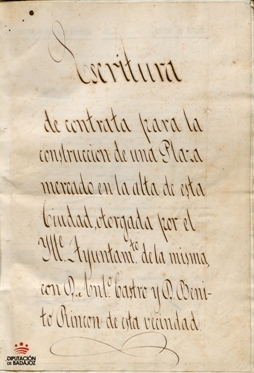 Escritura
de contrata para la
construccion de una Plaza
mercado en la alta de esta
Ciudad, otorgada por el
Yltre Ayuntamto de la misma,
con D. Andº Castro y D. Beni-
to Rincon de esta vecindad.
DIPUTACIÓN
DE BADAJOZ